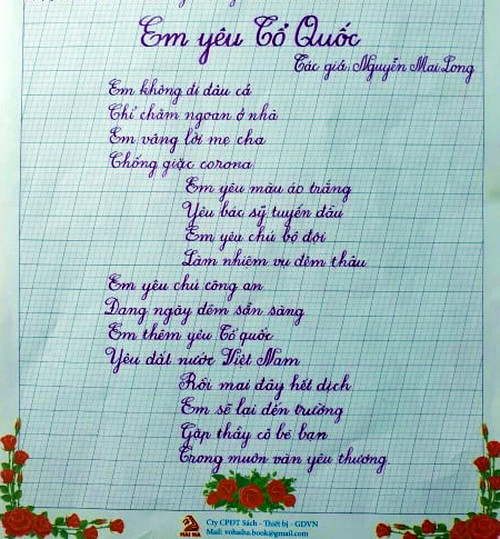 Em yêu Tổ Quốc
Tác giả: Nguyễn Mai Long
Em không đi đâu cả
Chỉ chăm ngoan ở nhà
Em vâng lời mẹ cha
Chống giặc corona
Em yêu màu áo trắng
Yêu bác sỹ tuyến đầu
Em yêu chú bộ đội
Làm nhiệm vụ đêm thâu
Em yêu chú công an
Đang ngày đêm sẵn sàng
Em thêm yêu Tổ quốc
Yêu đất nước Việt Nam
Rồi mai đây hết dịch
Em sẽ lại đến trường
Gặp thầy cô bè bạn
Trong muôn vàn yêu thương.
HẢI HÀ
Cty CPĐT Sách - Thiết bị - GDVN
Mail: vohaiha.book@gmail.com